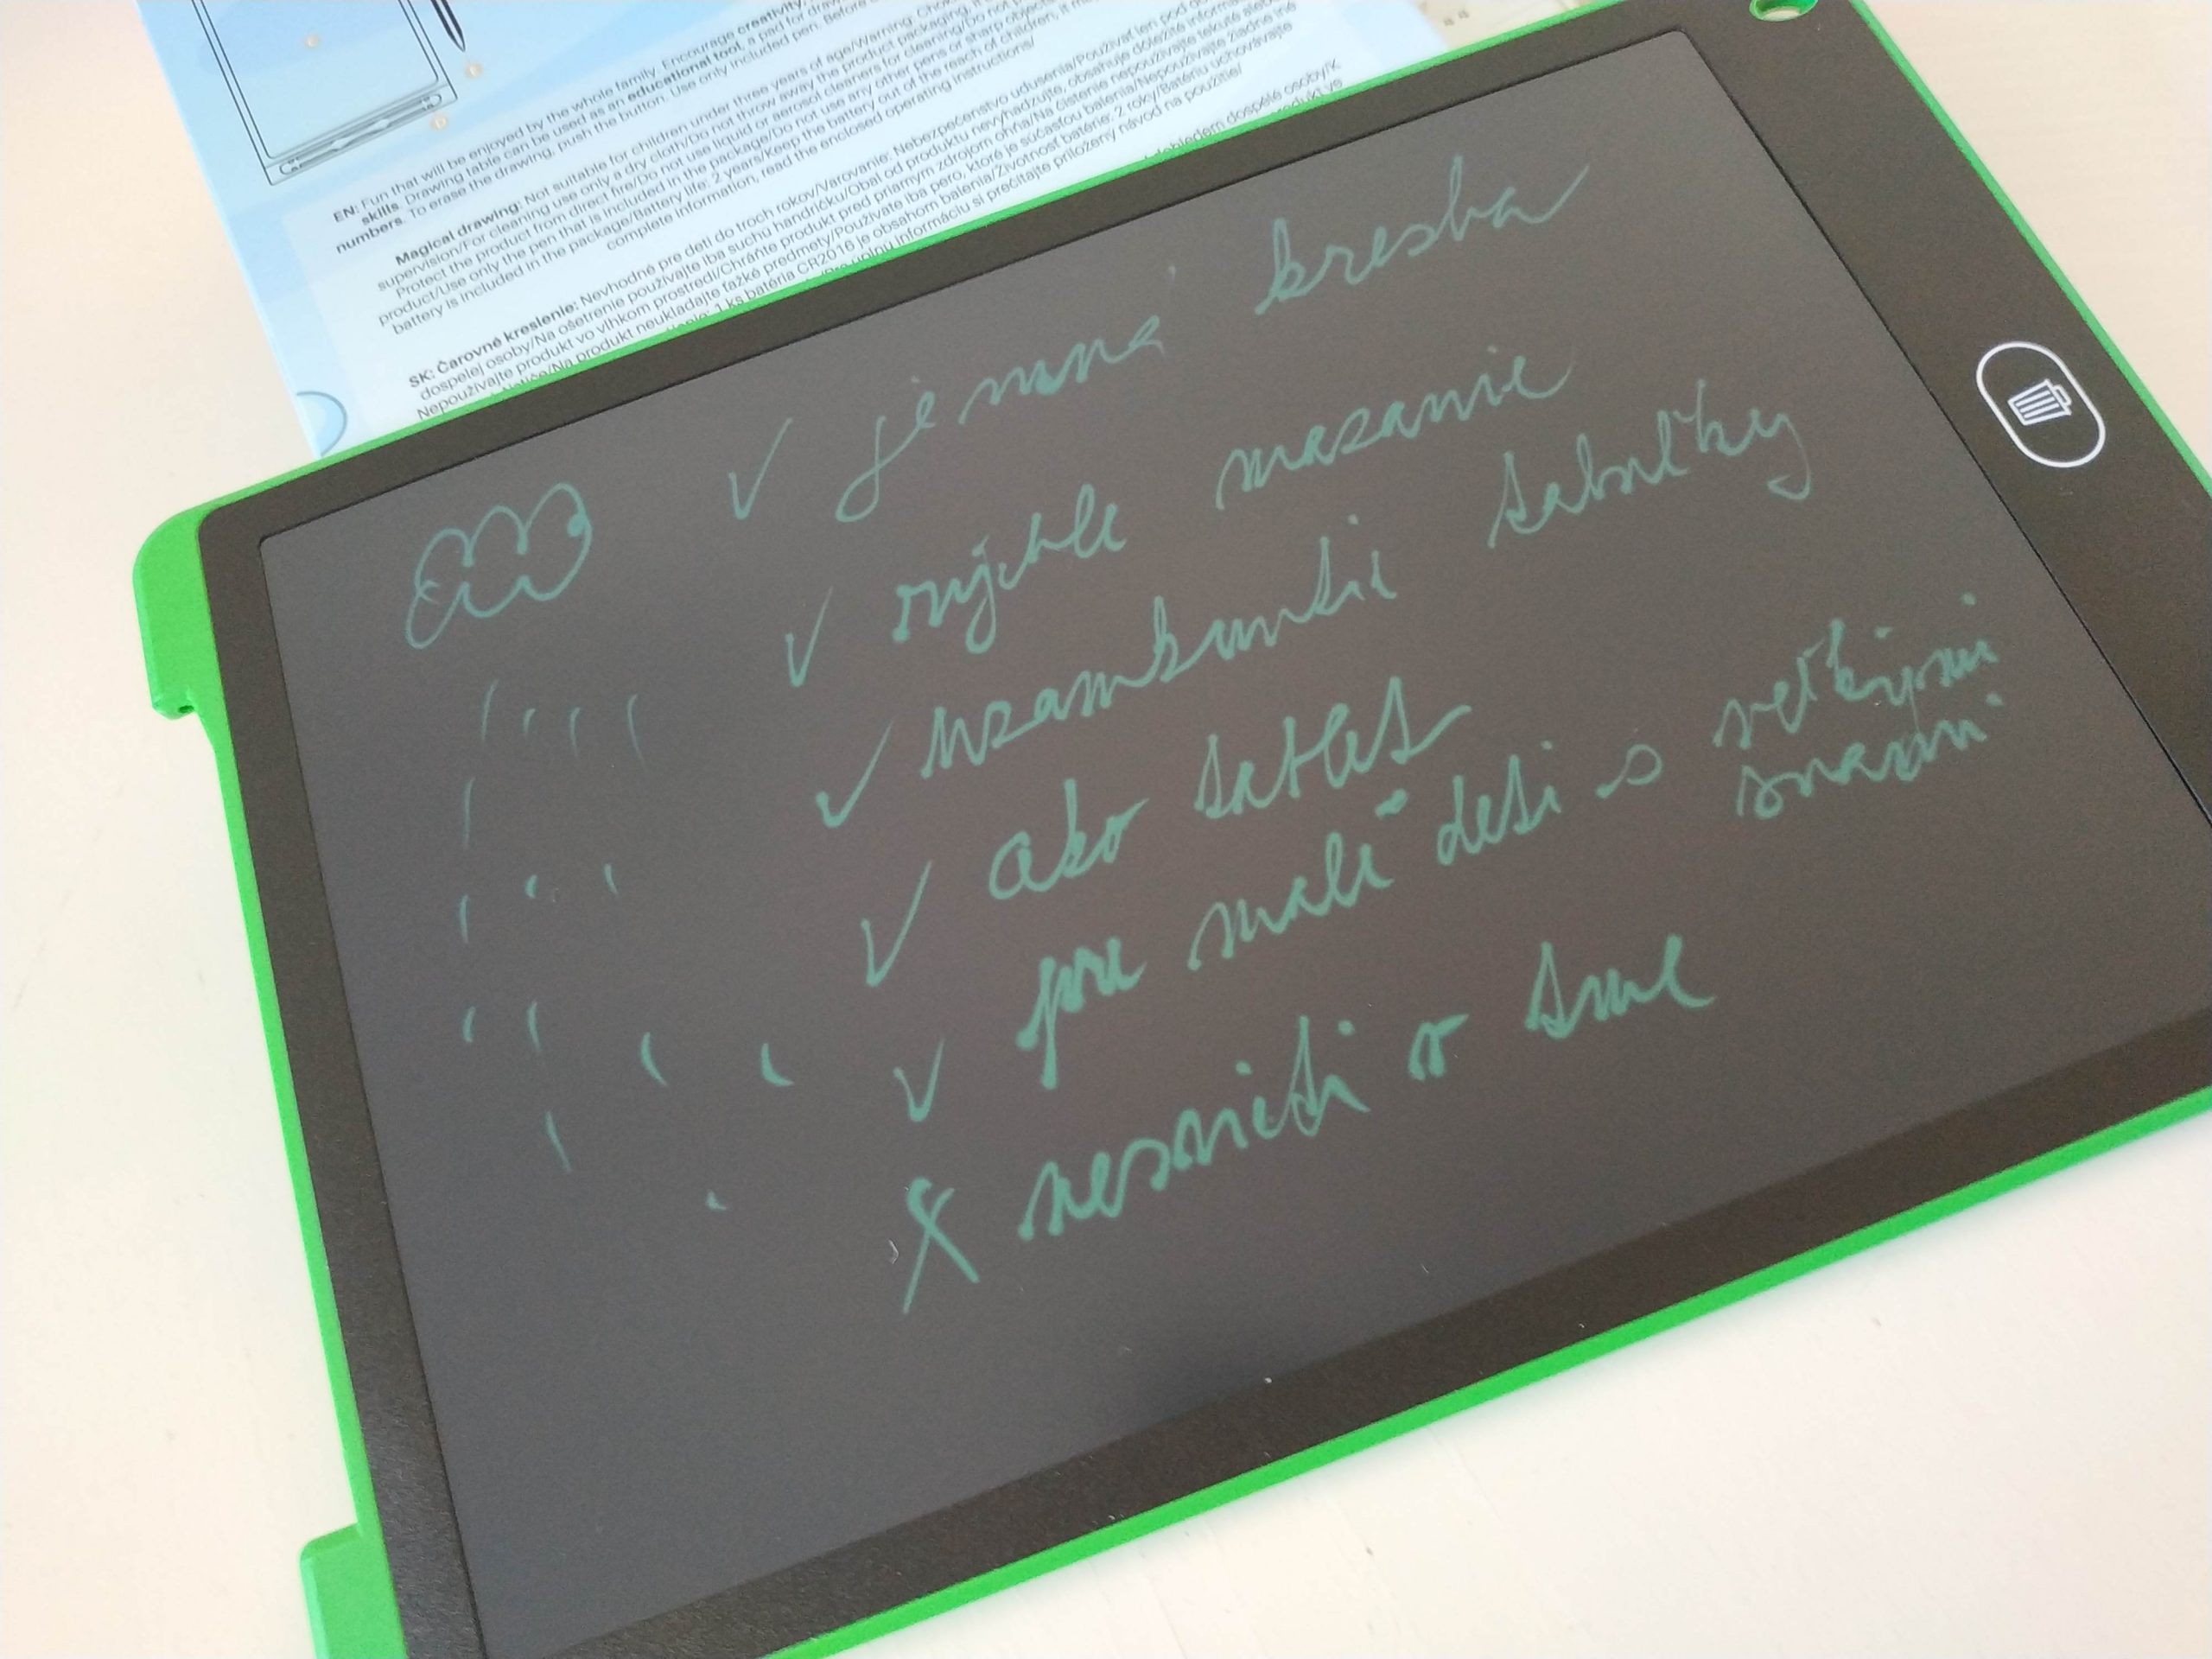 EN: Fun that will be enjoyed by the whole family. Encourage creativity,
skills. Drawing table can be used as an educational tool, a pad for
numbers. To erase the drawing, push the button. Use only included pen. Before
Magical drawing: Not suitable for children under three years of age/Warning:
supervision/For cleaning use only a dry cloth/Do not throw away the product packaging,
Protect the product from direct fire/Do not use liquid or aerosol cleaners for cleaning/Do not
product/Use only the pen that is included in the package/Do not use any other pens or sharp objects
battery is included in the package/Battery life: 2 years/Keep the battery out of the reach of children,
complete information, read the enclosed operating instructions/
SK: Čarovné kreslenie: Nevhodné pre deti do troch rokov/Varovanie: Nebezpečenstvo udusenia/Používať len pod
dospelej osoby/Na ošetrenie používajte iba suchú handričku/Obal od produktu nevyhadzujte, obsahuje dôležité
Nepoužívajte produkt vo vlhkom prostredí/Chráňte produkt pred priamym zdrojom ohňa/Na čistenie nepoužívajte tekuté
produkt neukladajte ťažké predmety/Používajte iba pero, ktoré je súčasťou balenia/Nepoužívajte žiadne iné
1 ks batéria CR2016 je obsahom balenia/Životnosť batérie: 2 roky/Batériu uchovávajte
informáciu si prečítajte priložený návod na použitie/
dospělé osoby/K
✓ jemná kresba
✓ rýchle mazanie
✓ uzamknutie tabuľky
✓ ako tablet
✓ pre malé deti s veľkými
snami
X nesvieti v tme